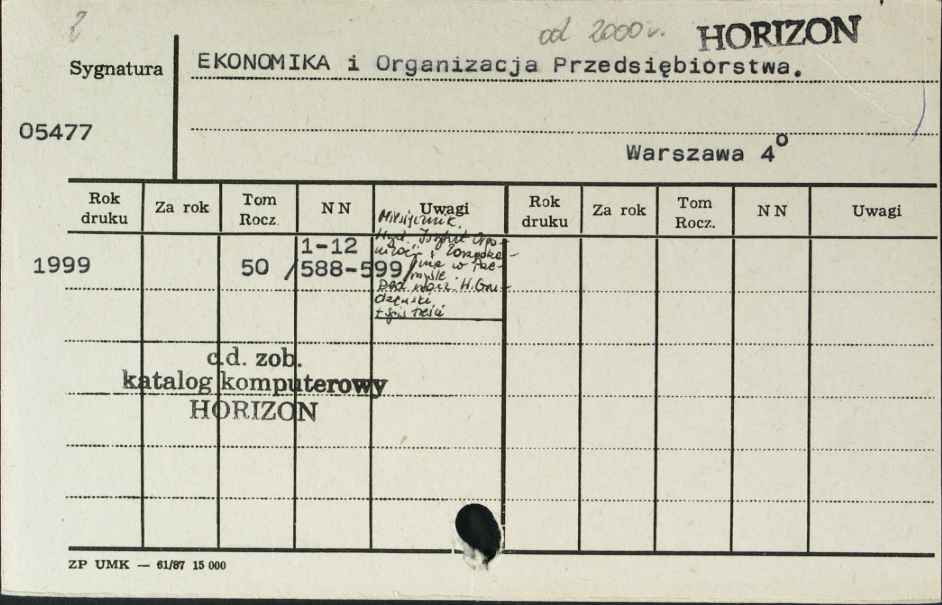 2
od 2000 r. HORIZON
Sygnatura
EKONOMIKA i Organizacja Przedsiębiorstwa.
05477
Warszawa 4°
Rok druku Za rok Tom Rocz. NN Uwagi Rok druku Za rok Tom Rocz. NN Uwagi
Miesięcznik.
1-12
1999 50 /588-599/
w
Pod H. Gru-
treści
c.d. zob.
katalog komputerowy
HORIZON
ZP UMK — 61/87 15 000